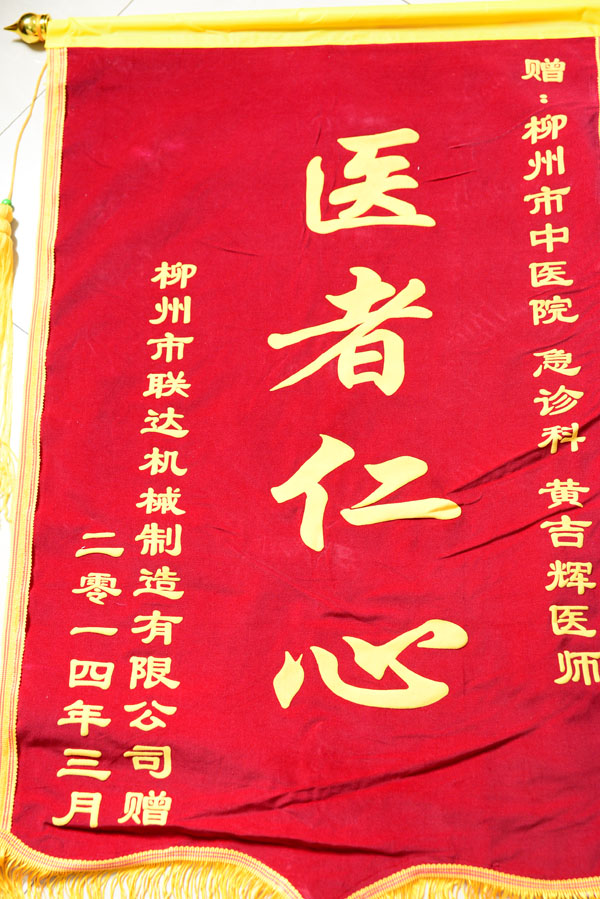 赠：柳州市中医院 急诊科 黄吉辉医师
医者仁心
柳州市联达机械制造有限公司赠
二零一四年三月